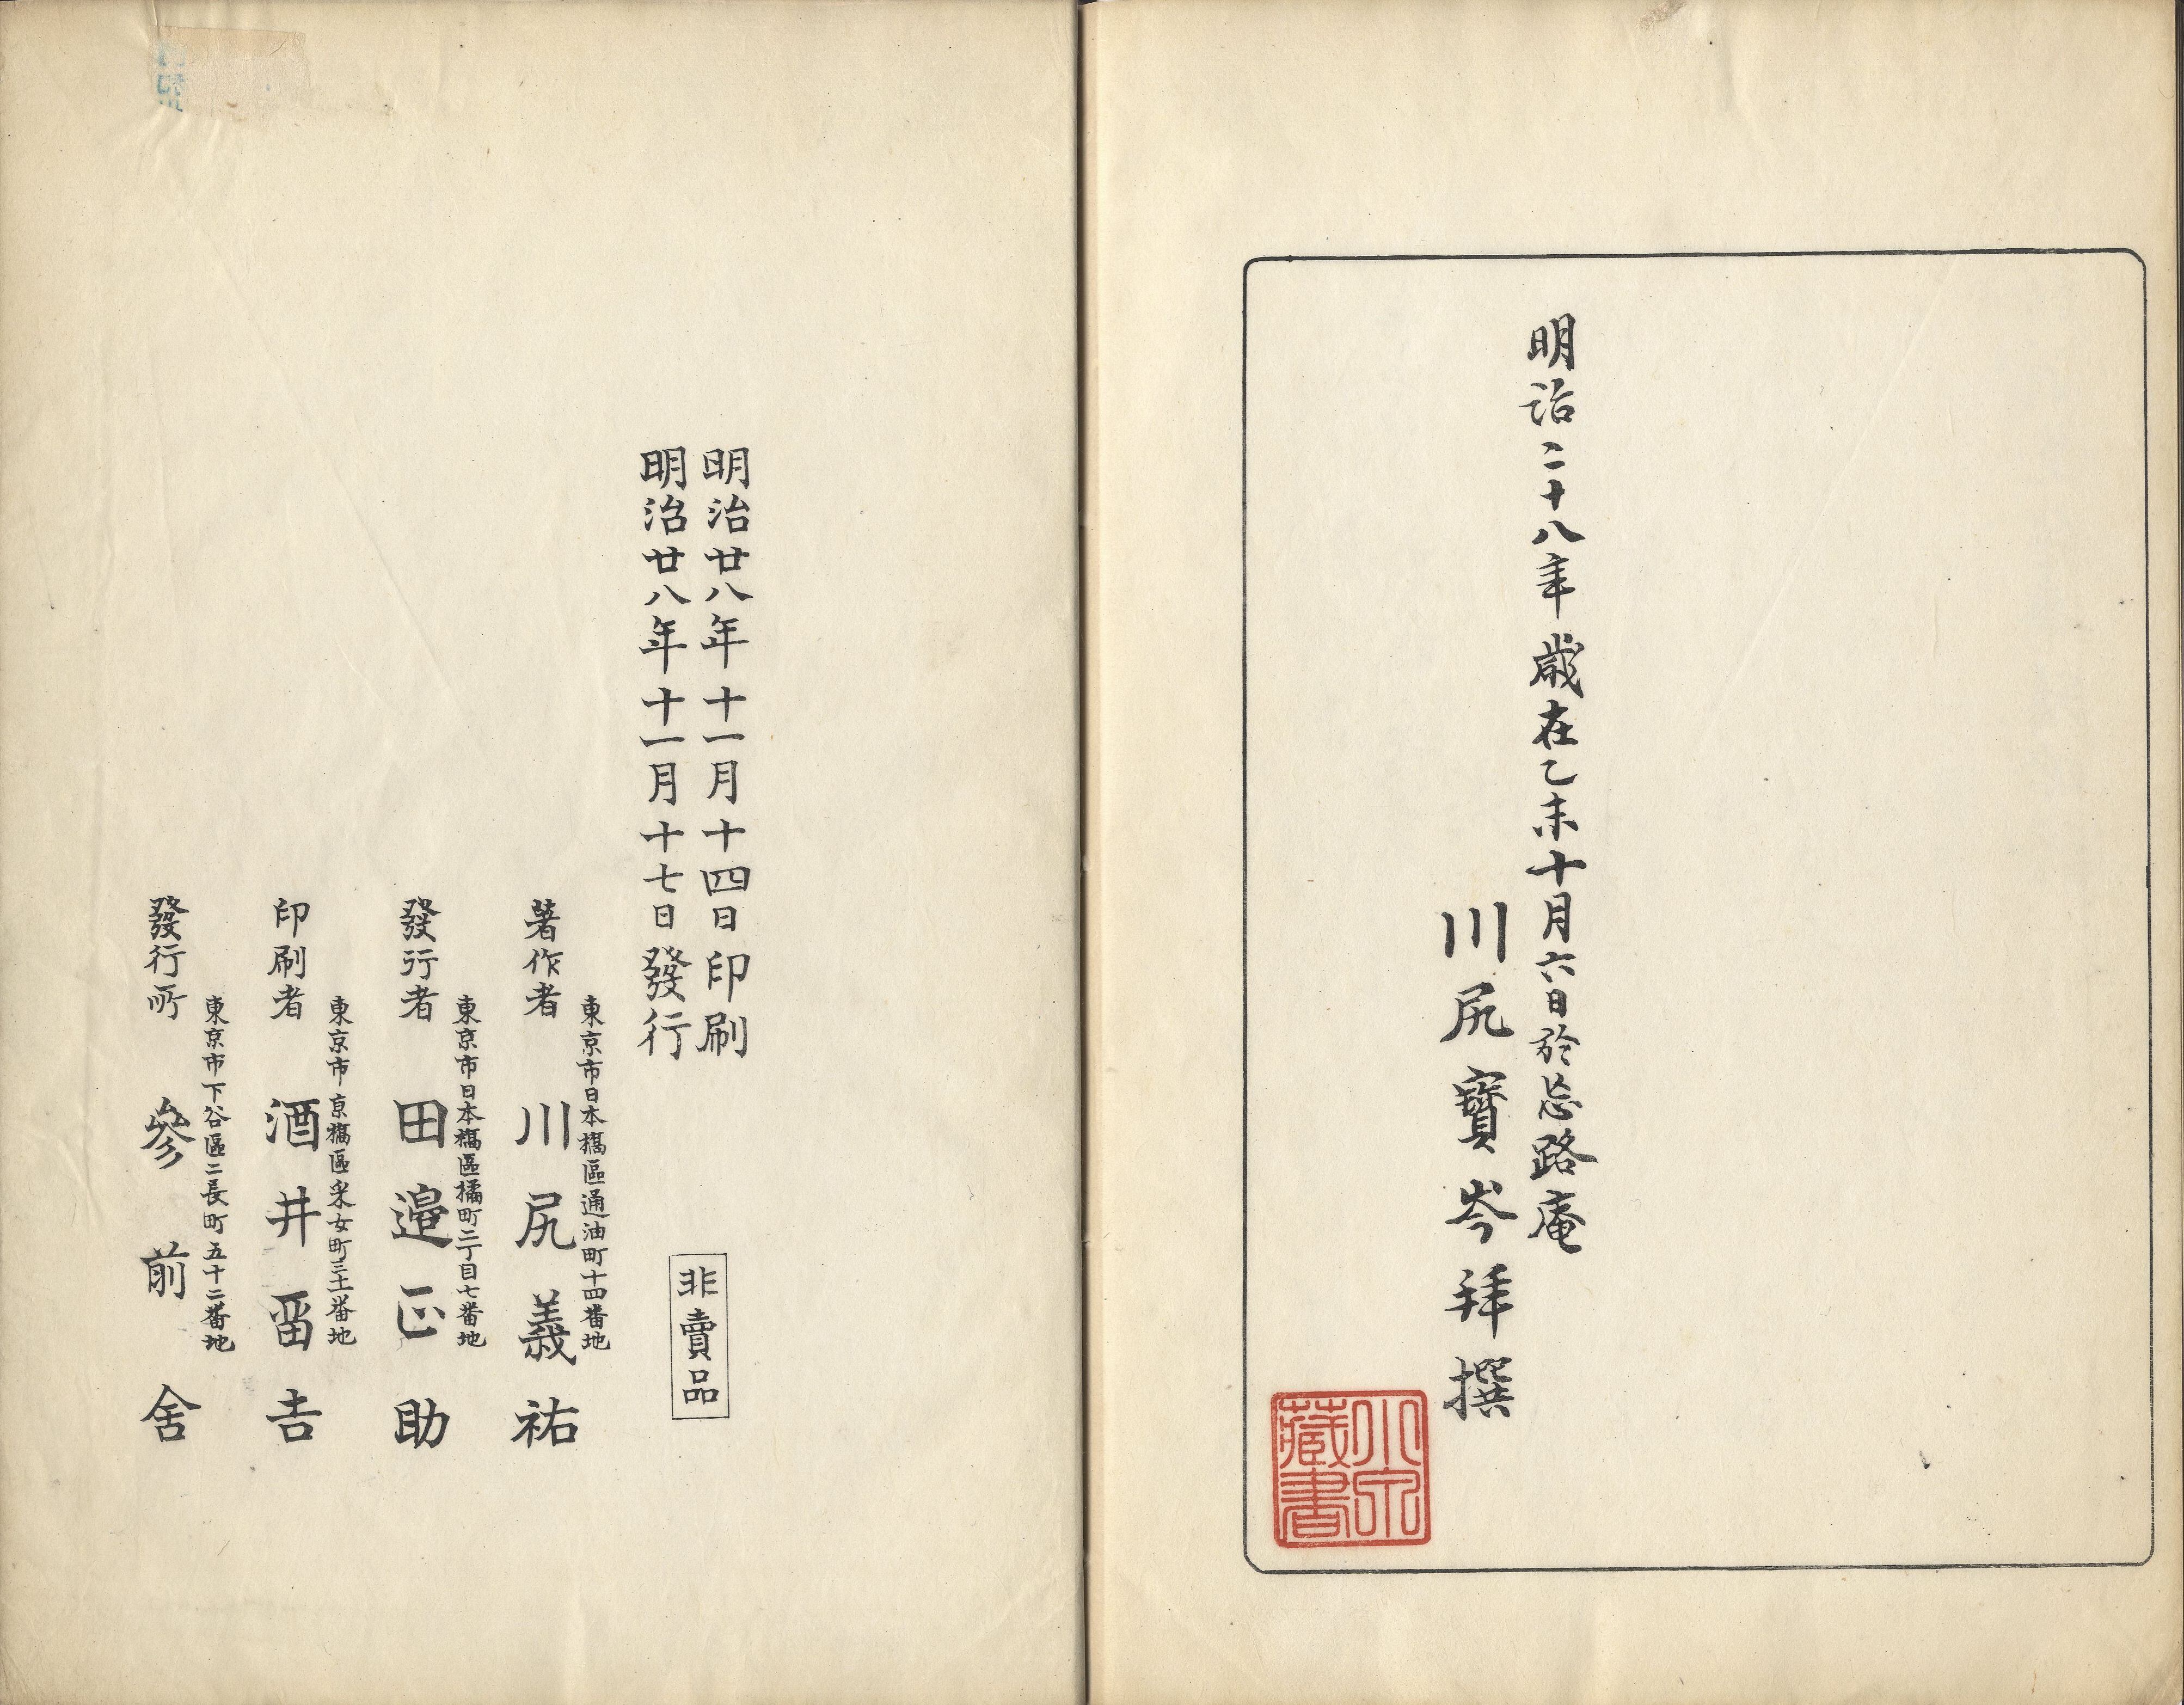 明治二十八年歳在乙未十月六日於忘路庵
川尻寶岑拜撰
藏書
明治廿八年十一月十四日印刷
明治廿八年十一月十七日發行
非賣品
東京市日本橋區通油町十四番地
著作者 川尻義祐
東京市日本橋區橘町二丁目七番地
發行者 田邉正助
東京市京橋區采女町三十二番地
印刷者 酒井畱吉
東京市下谷區二長町五十二番地
發行所 參前舍